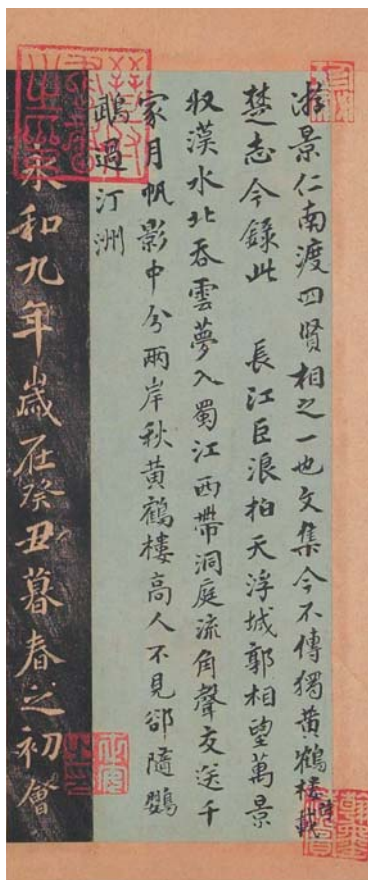 游景仁南渡四賢相之一也文集今不傳獨黃鶴樓詩載
楚志今錄此 長江巨浪拍天浮城郭相望萬景
収漢水北吞雲夢入蜀江西帶洞庭流角聲交送千
家月帆影中分兩岸秋黃鶴樓高人不見卻隨鸚
鵡過汀洲
永和九年歲在癸丑暮春之初會